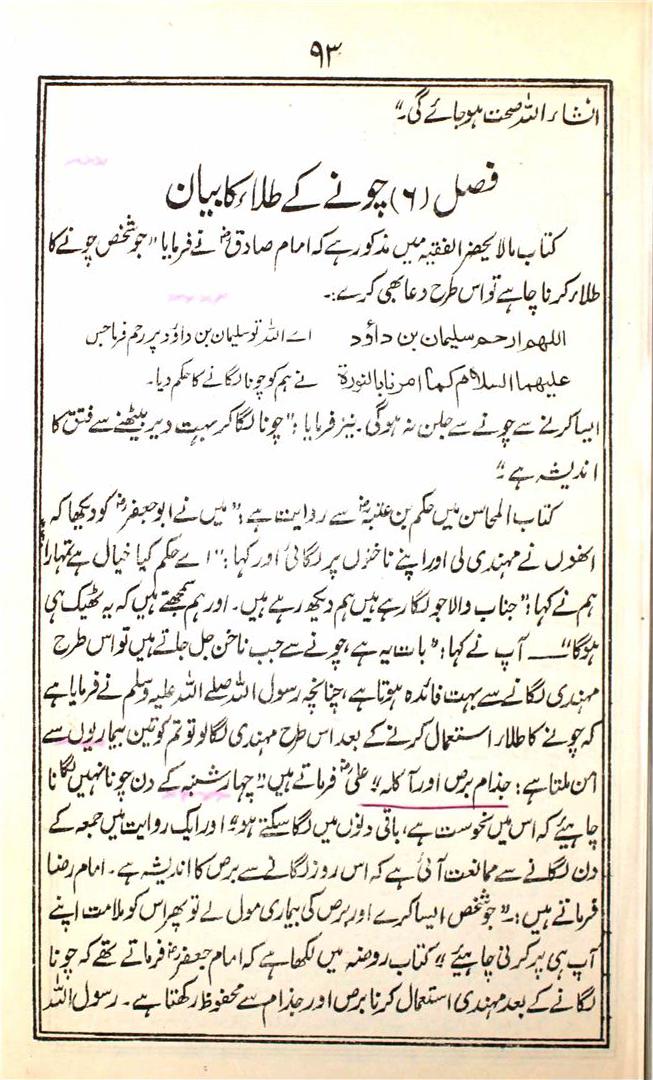 ۹۳
انشاء اللہ صحت ہوجائے گی۔"
فصل (۶) چونے کے طلاء کا بیان
کتاب مالا یحضر الفقیہ میں مذکور ہے کہ امام صادقؑ نے فرمایا "جو شخص چونے کا
طلاء کرنا چاہے تو اس طرح دعا بھی کرے:۔
اللهم ارحم سليمان بن داؤد اے اللہ تو سلیمان بن داؤد پر رحم فرما جس
عليهما السلام كما امرنا بالنورة نے ہم کو چونا لگانے کا حکم دیا۔
ایسا کرنے سے چونے سے جلن نہ ہوگی۔ نیز فرمایا: "چونا لگا کر بہت دیر بیٹھنے سے فتق کا
اندیشہ ہے۔"
کتاب المحاسن میں حکم بن عتبہ سے روایت ہے: "میں نے ابو جعفرؑ کو دیکھا کہ
انھوں نے مہندی لی اور اپنے ناخنوں پر لگائی اور کہا: "اے حکم کیا خیال ہے تمہارا"
ہم نے کہا: "جناب والا جو لگا رہے ہیں ہم دیکھ رہے ہیں۔ اور ہم سمجھتے ہیں کہ یہ ٹھیک ہی
ہوگا" — آپ نے کہا: "بات یہ ہے، چونے سے جب ناخن جل جاتے ہیں تو اس طرح
مہندی لگانے سے بہت فائدہ ہوتا ہے، چنانچہ رسول اللہ صلے اللہ علیہ وسلم نے فرمایا ہے
کہ چونے کا طلاء استعمال کرنے کے بعد اس طرح مہندی لگا لو تو تم کو تین بیماریوں سے
امن ملتا ہے: جذام برص اور آکلہ" علیؑ فرماتے ہیں "چہار شنبہ کے دن چونا نہیں لگانا
چاہیئے کہ اس میں نحوست ہے، باقی دنوں میں لگا سکتے ہو" اور ایک روایت میں جمعہ کے
دن لگانے سے ممانعت آئی ہے کہ اس روز لگانے سے برص کا اندیشہ ہے۔ امام رضا
فرماتے ہیں:۔ "جو شخص ایسا کرے اور برص کی بیماری مول لے تو پھر اس کو ملامت اپنے
آپ ہی پر کرنی چاہیئے" کتاب روضہ میں لکھا ہے کہ امام جعفرؑ فرماتے تھے کہ چونا
لگانے کے بعد مہندی استعمال کرنا برص اور جذام سے محفوظ رکھتا ہے۔ رسول اللہ